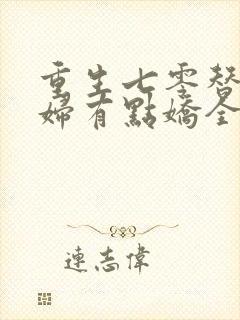 重生七零替
婦有點嬌全
連志偉